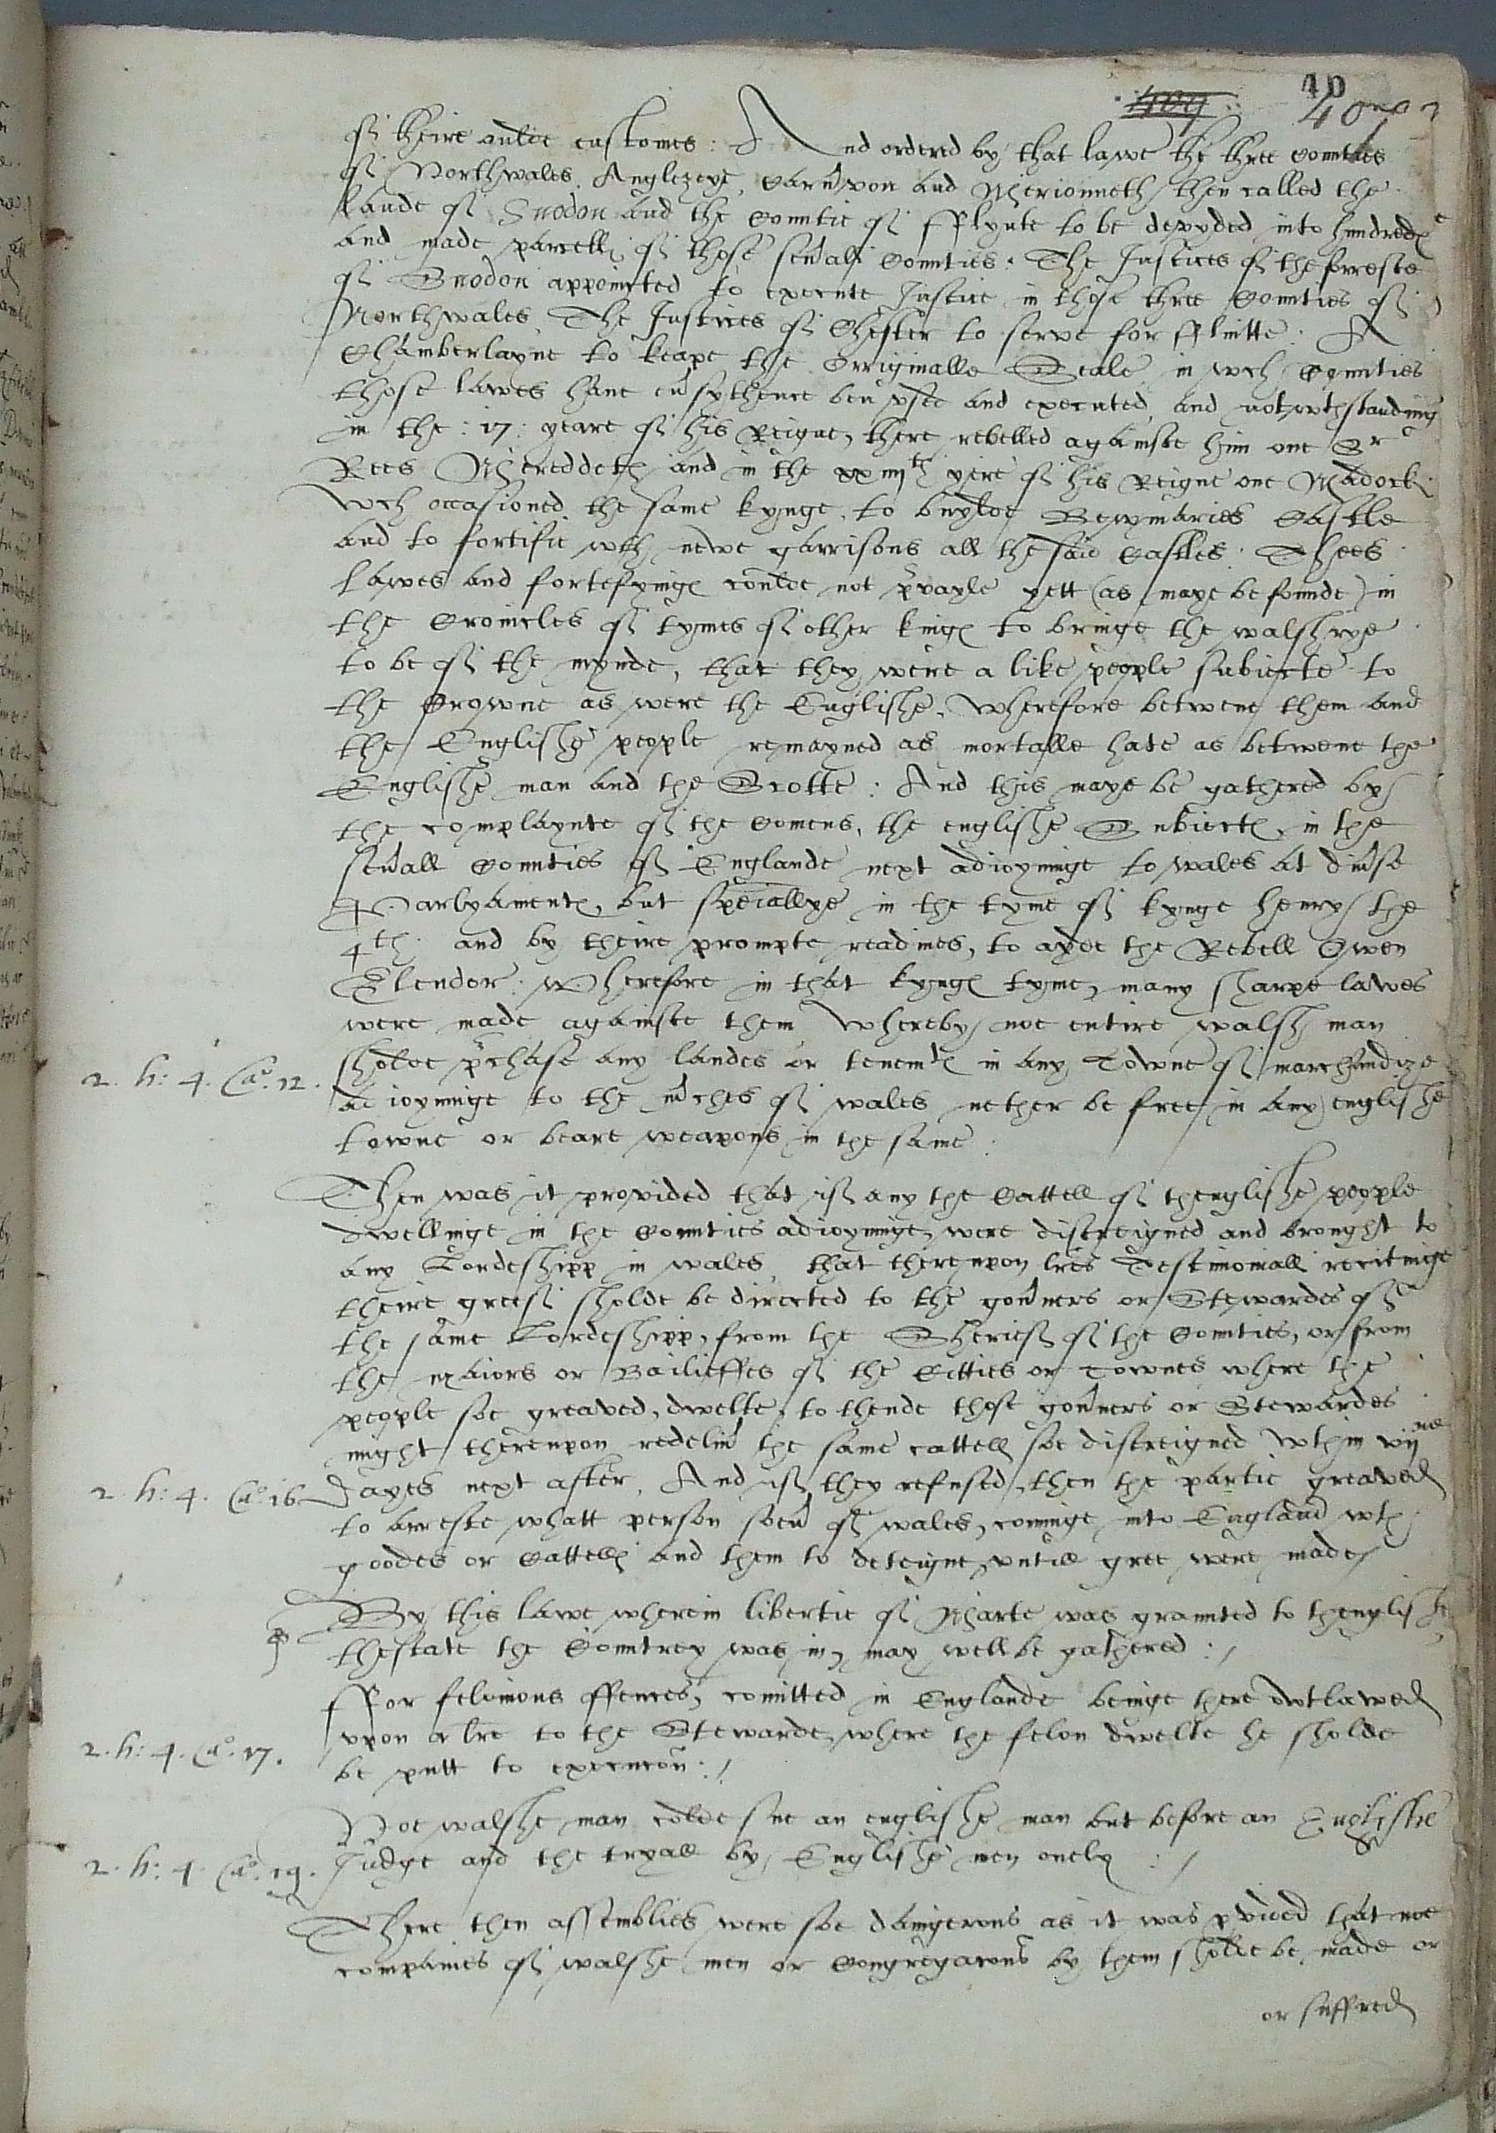 40
409
40
of theire oulde customes : And ordered by that lawe the three Counties
of Northwales, Anglezeye, Carnˀvon and Merionneth, then called the
lande of Snodon and the Countie of Fflynte to be devyded into hundredes
and made parcell of those seuˀall Counties : The Justices of the forreste
of Snodon appointed to execute Justice in those three Counties of
Northwales, The Justices of Chester to serve for Flintte : A
Chamberlayne to keape the Orriginalle Seale in wch Counties
those lawes haue euˀ sythence ben vsed and executed, and notwthstanding
in the : 17 : yeare of his Reigne, there rebelled againste him one Sr
Rees Mereddeth and in the xxiijth yere of his Reigne one Madock
wch occasioned the same kynge, to buylde Bewmaries Castle
and to fortifie wth newe garrisons all the said Castles : Thees
lawes and fortefyinges coulde not pˀvayle yett (as maye be founde) in
the Cronicles of tymes of other kinges to bringe the walshrye
to be of the mynde, that they were a like people subiecte to
the Crowne as were the Englishe, Wherefore betwene them and
the Englishe people remayned as mortalle hate as betwene the
Englishe man and the Scotte : And this maye be gathered by
the complaynte of the Comens, the englishe Subiectes, in the
seuˀall Counties of Englande next adioyninge to wales at diuˀse
Parlyamentes, but speciallye in the tyme of kynge henry the
4th. and by theire prompte readines, to ayde the Rebell Owen
Glendor : Wherefore in that kynges tyme, many sharpe lawes
were made againste them Whereby noe entire walsh man
2. h: 4. Cao. 12. sholde pˀchase any landes or tenemtes in any Towne of marchandize
adioyninge to the mˀches of wales nether be free in any englishe
towne or beare weapons in the same :
Then was it provided that if any the Cattell of thenglishe people
dwellinge in the Counties adioyninge, were distreigned and brought to
any Lordeshipp in wales, that thereupon lres Testimoniall recitinge
theire greef sholde be directed to the gouˀners or Stewardes of
the same Lordeshipp, from the Sherief of the Counties, or from
the maiors or Bailieffes of the Citties or Townes where the
people soe greaved, dwelte, to thende those gouˀners or Stewardes
might thereupon redeliuˀ the same cattell soe distreigned wthin vij
2. h: 4. Cao. 16 Dayes next after. And if they refused, then the partie greaved
to arreste whatt person soeuˀ of wales, cominge into England wth
goodes or Cattell and them to deteigne, vntill gree were made
By this lawe wherein libertie of Marte was graunted to thenglishe
thestate the Countrey was in, may well be gathered : /
Ffor felonious offences, comitted in Englande beinge there owtlawed
vpon a lre to the Stewarde, where the felon dwelte he sholde
2. h: 4. Cao. 17. be putt to execucon : /
Noe walshe man colde sue an englishe man but before an Englishe
2. h: 4. Cao. 19. Judge and the tryall by Englishe men onely : /
There then assemblies were soe daungerous as it was pˀvided that noe
companies of walshe men or Congregacons by them sholde be made or
or suffred